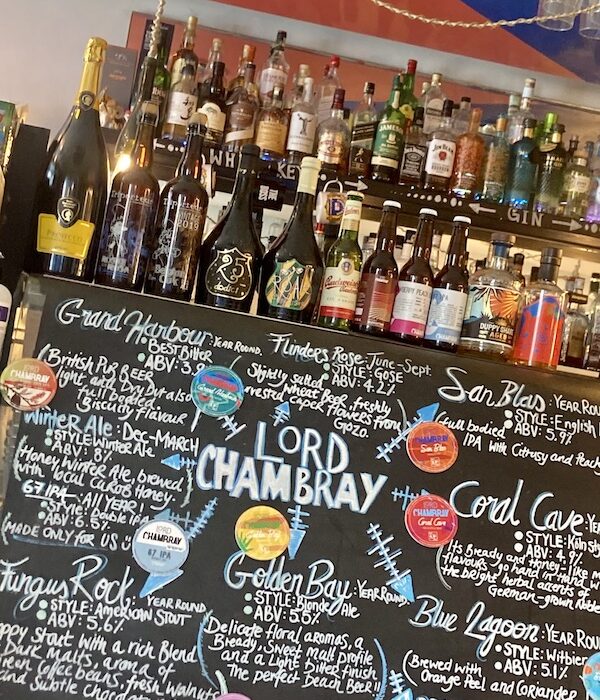 WHISKEY
GIN
JAMESON
JIM BEAM
PROSECCO
2019
25
dodici
Budweiser
DUPPY SHARE
AGED
Grand Harbour: YEAR ROUND.
BEST BITTER
• ABV: 3.9
(British Pub BEER
light and Dry but also
full bodied
Biscuity flavour
Flinders Rose: June-Sept.
• STYLE: GOSE
• ABV: 4.2%
(Slightly salted
wheat Beer, freshly
Caper flowers from
Gozo.
San Blas: YEAR ROU
• STYLE: English I
• ABV: 5.7%
(full bodied
IPA with Citrusy and Peach
Winter Ale: Dec-MARCH
• STYLE: Winter Ale
• ABV: 8%
(Honey Winter Ale, brewed
with local Carob Honey.
67 IPA: ALL YEAR!
• STYLE: Double IPA
• ABV: 6.5%
(MADE ONLY FOR US
LORD
CHAMBRAY
LORD
CHAMBRAY
Grand Harbour
San Blas
Coral Cave
LORD
CHAMBRAY
67 IPA
Golden Bay
Coral Cave: YE
• STYLE: Köln sty
• ABV: 4.9%
(Its Bready and Honey-like m
flavours go hand in hand w
the bright herbal accents of
German-grown Noble
Fungus Rock: YEAR ROUND
• STYLE: American STOUT
• ABV: 5.6%
start with a rich Blend
Dark Malts, aroma of
Coffee beans, fresh walnuts
and subtle chocol
Golden Bay: YEAR ROUND
• STYLE: Blonde Ale
• ABV: 5.5%
(Delicate floral aromas, a
Bready, Sweet malt profile
and a Light bitter finish.
The perfect Beach Beer!!)
Blue Lagoon: YEAR ROU
• STYLE: Witbier
• ABV: 5.1%
(Brewed with
Orange Peel and Coriander